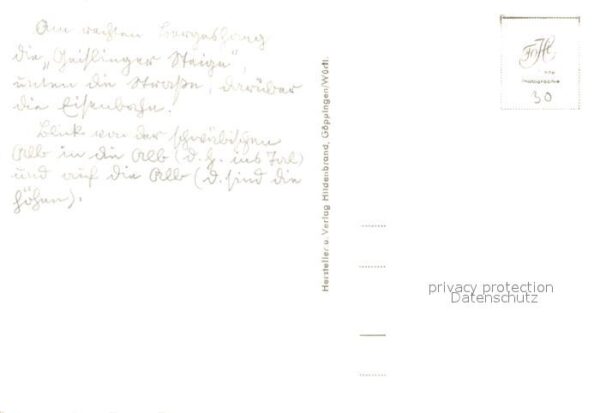 Am rechten Bergeshang
die „Geislinger Steige“,
unten die Straße, darüber
die Eisenbahn.
Blick von der schwäbischen
Alb in die Alb (d. h. ins Tal)
und auf die Alb (d. sind die
Höhen).
Hersteller u. Verlag Hildenbrand, Göppingen/Württ.
30
privacy protection
Datenschutz